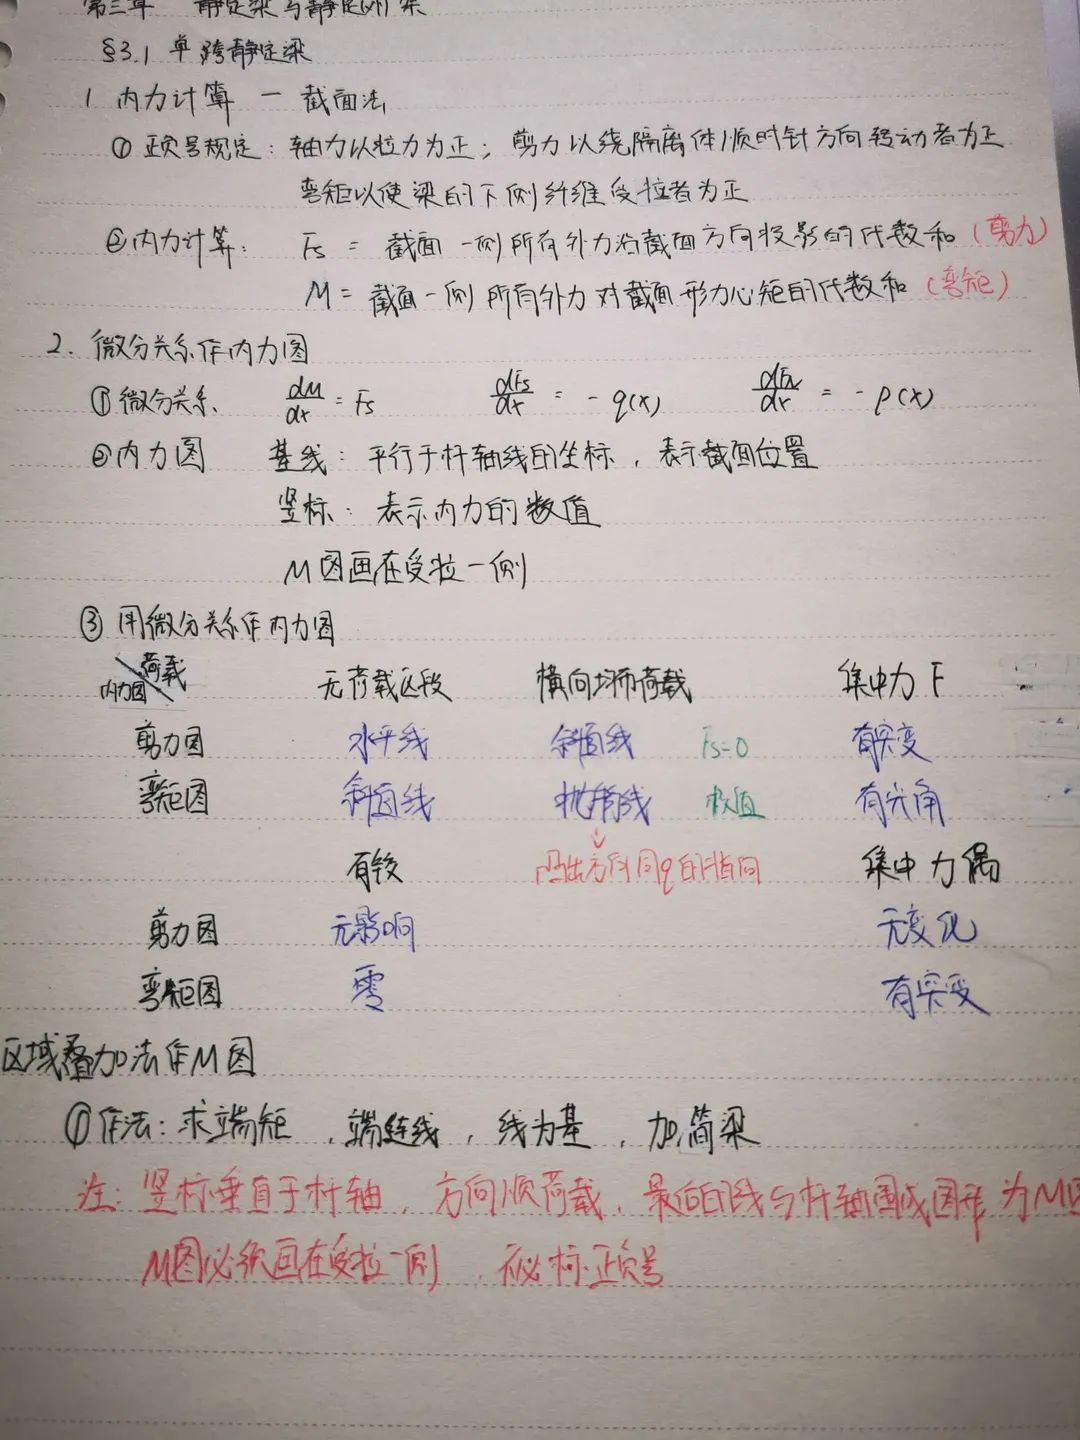 第三章 静定梁与静定刚架
§3.1 单跨静定梁
1 内力计算 — 截面法
① 正负号规定：轴力以拉力为正；剪力以绕隔离体顺时针方向转动者为正
弯矩以使梁的下侧纤维受拉者为正
②内力计算： Fs = 截面一侧所有外力沿截面方向投影的代数和（剪力）
M = 截面一侧所有外力对截面形力心矩的代数和（弯矩）
2. 微分关系作内力图
①微分关系 dM/dx = Fs dFs/dx = - q(x) dFN/dx = - p(x)
②内力图 基线：平行于杆轴线的坐标，表示截面位置
竖标：表示内力的数值
M图画在受拉一侧
③ 用微分关系作内力图
荷载
内力图 无荷载区段 横向均布荷载 集中力 F
剪力图 水平线 斜直线 Fs=0 有突变
弯矩图 斜直线 抛物线 极值 有尖角
有铰 凸出方向同q的指向 集中力偶
剪力图 无影响 无变化
弯矩图 零 有突变
区域叠加法作M图
①作法：求端矩，端连线，线为基，加简梁
注：竖标垂直于杆轴，方向顺荷载，最后的线与杆轴围成图形为M图
M图必须画在受拉一侧，不必标正负号